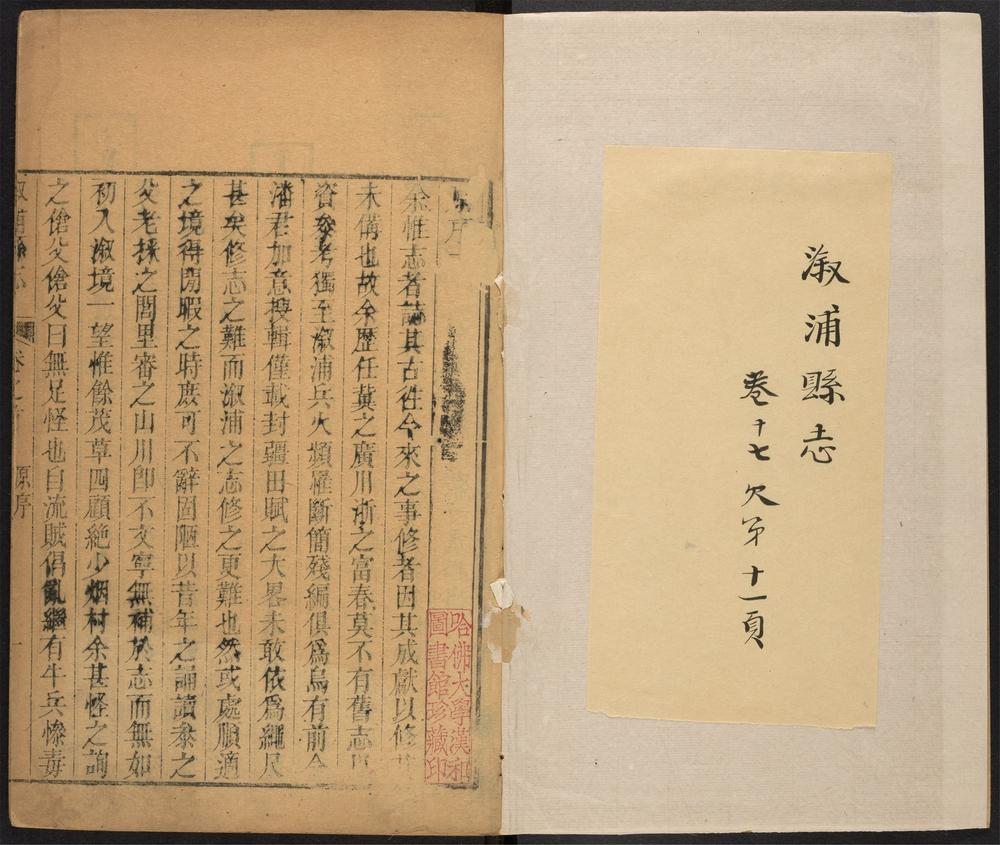 溆浦縣志
卷十七欠第十一頁
原序
余惟志者誌其古徃今來之事修者因其成獻以修
未備也故余歷任冀之廣川浙之富春莫不有舊志
資參考獨至溆浦兵火頻罹斷簡殘編俱爲烏有前令
潘君加意搜輯僅載封疆田賦之大畧未敢依爲繩尺
甚矣修志之難而溆浦之志修之更難也然或處順適
之境得閒暇之時庶可不辭固陋以昔年之誦讀叅之
父老採之閭里審之山川卽不文寧無補於志而無如
初入溆境一望惟餘茂草四顧絶少烟村余甚怪之詢
之傖父傖父曰無足怪也自流賊倡亂繼有牛兵慘毒
溆浦縣志
卷之首
原序
一
哈佛大學漢和
圖書館珍藏印